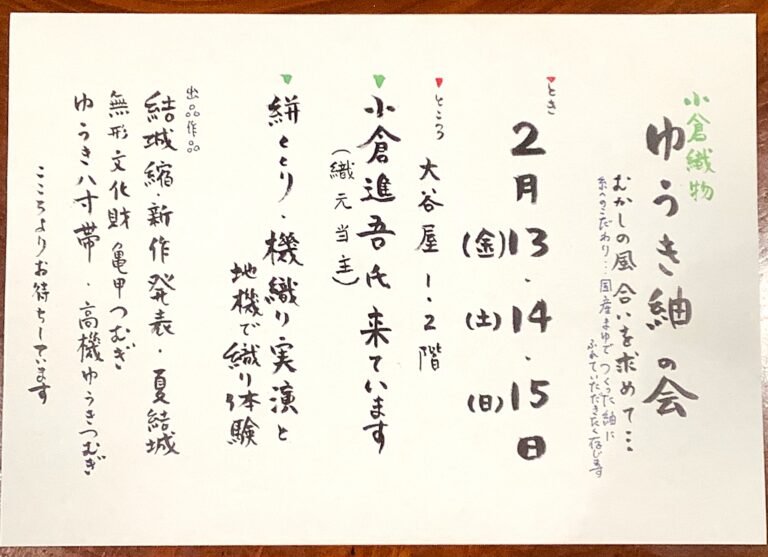 小倉織物
ゆうき紬の会
むかしの風合いを求めて…
糸へのこだわり…国産まゆでつくった紬に
ふれていただきたく存じます
とき
2月13・14・15日
(金)(土)(日)
ところ
大谷屋 1・2階
小倉進吾氏来ています
(織元当主)
絣くくり・機織り実演と
地機で織り体験
出品作品
結城縮・新作発表・夏結城
無形文化財亀甲つむぎ
ゆうき八寸帯・高機ゆうきつむぎ
こころよりお待ちしています